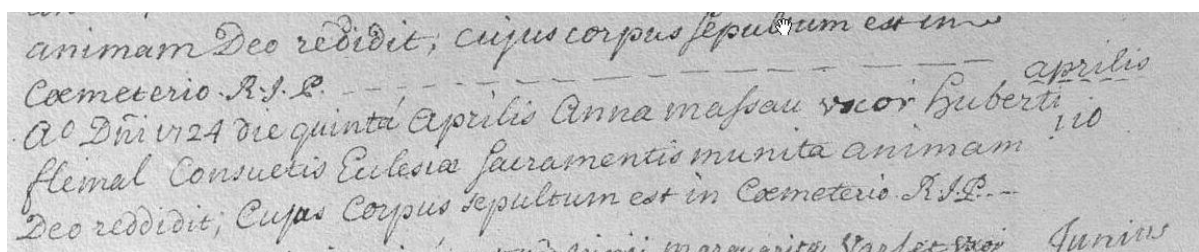 animam Deo redidit; cujus corpus sepultum est in
Cœmeterio. R.I.P.
aprilis
Aº Dñi 1724 die quintâ Aprilis Anna massau uxor Huberti
110
flemal Consuetis Eclesiæ Sacramentis munita animam
Deo reddidit; Cujus Corpus sepultum est in Cœmeterio. R.I.P.
margarita uxor Junius